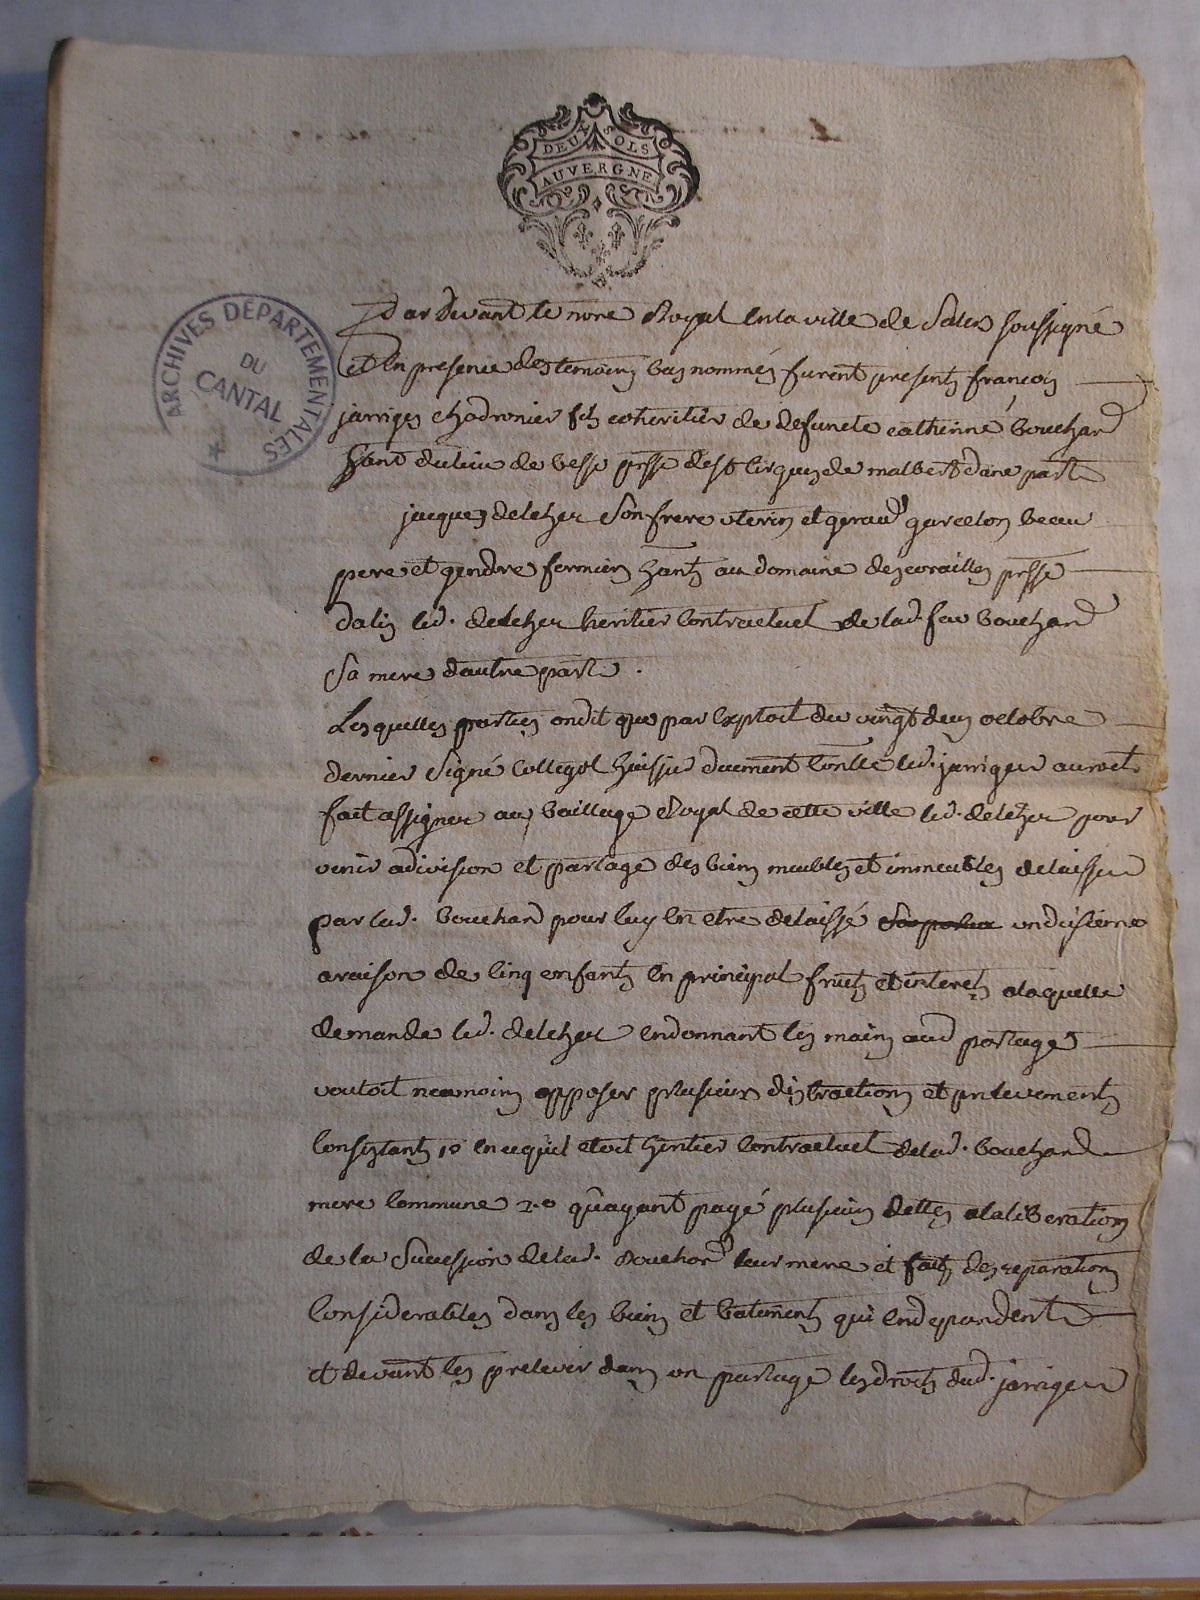 DEUX SOLS
AUVERGNE
ARCHIVES DEPARTEMENTALES
DU
CANTAL
Pardevant le nore Royal en la ville de Salers soussigné
et en presence des temoins bas nommés furent presents françois
jarriges chodronier fils coheritier de defuncte catherine Bouchard
hant du lieu de besse psse de st cirgues de malbert dune part
jacques delcher son frere uterin et geraud garcelon beau
pere et gendre fermiers hants au domaine descorailles psse
dalis led. delcher heritier contractuel de lad. feu bouchard
sa mere dautre part.
Lesquelles parties ondit que par exploit du vingt deux octobre
dernier signé Collegol huissier duement conllé led. jarriges auroit
fait assigner au baillage Royal de cette ville led. delcher pour
venir adivision et partage des biens meubles et immeubles delaissés
par lad. bouchard pour luy en etre delaissé un dixieme
araison de cinq enfants en principal fruits et interets alaquelle
demande led. delcher endonnant les mains aud partage
vouloit neamoins opposer plusieurs distractions et prelevements
consistants 1o en cequil etoit heritier contractuel delad. bouchard
mere commune 2.o quayant payé plusieurs dettes alaliberation
de la succession delad. Bouchard leur mere et faits des reparations
considerables dans les biens et batiments qui endependent
et devant les prelever dans un partage les droits dud. jarriges